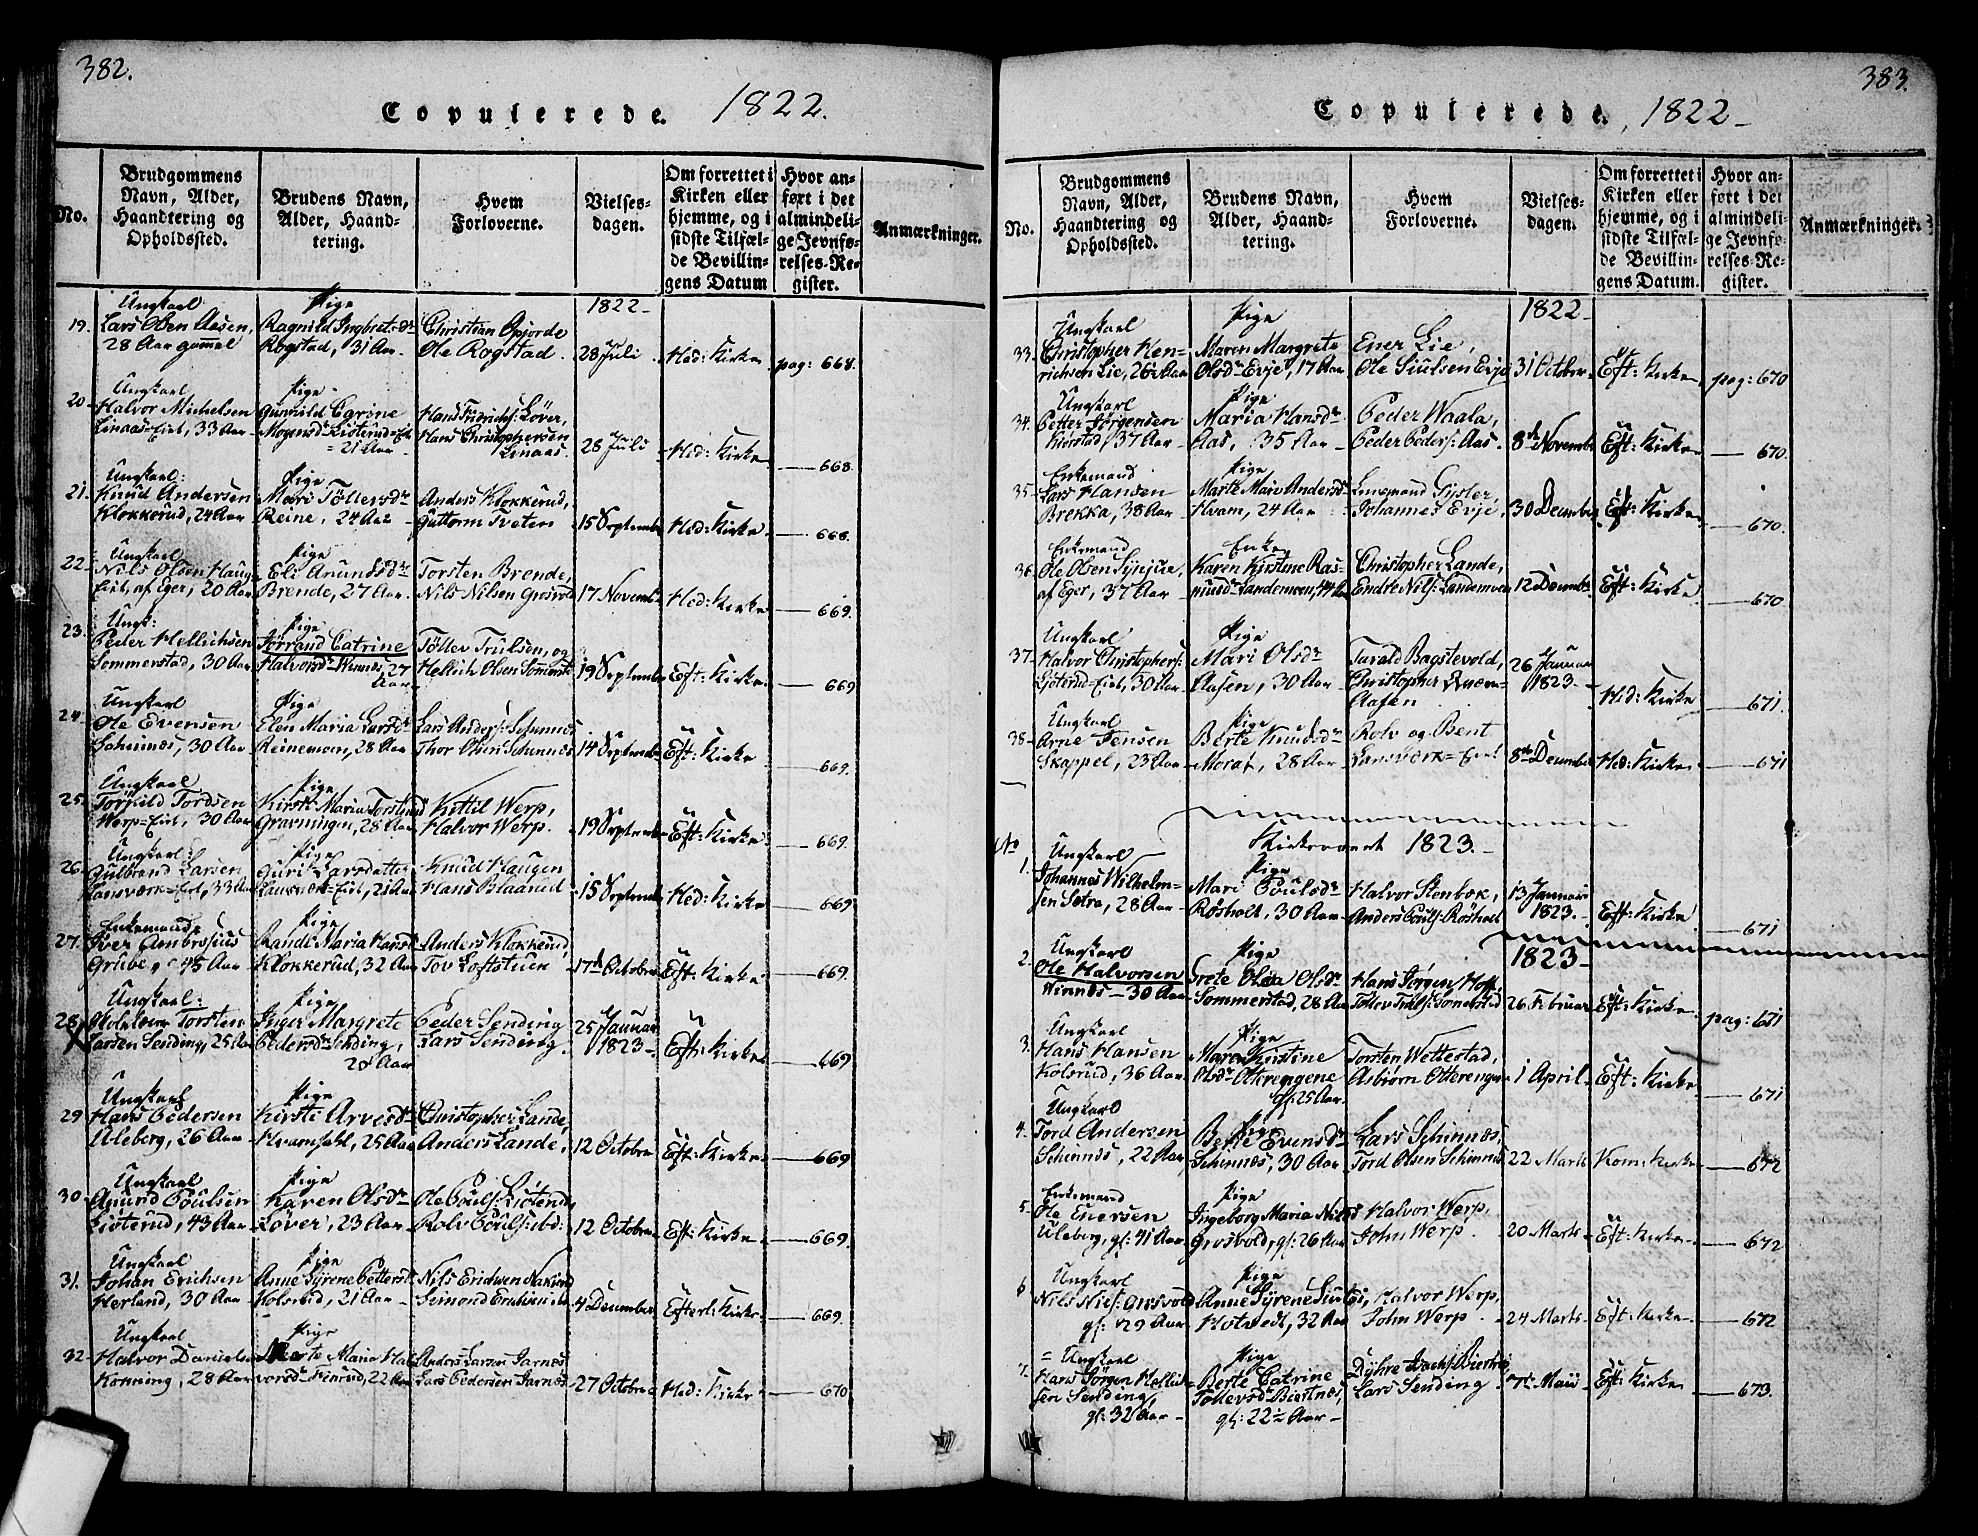 382.
Copulerede. 1822.
No.
Brudgommens Navn, Alder, Haandtering og Opholdssted.
Brudens Navn, Alder, Haandtering.
Hvem Forloverne.
Vielsesdagen.
Om forrettet i Kirken eller hjemme, og i sidste Tilfælde Bevillingens Datum
Hvor anført i det almindelige Jevnførelses-Register.
Anmærkninger.
1822
19. Ungkarl Lars Olsen Aasen, 28 Aar gammel
Pige Ragnild Ingbretsdr Rogstad, 31 Aar
Christian Opjorde Ole Rogstad.
28 Juli
Hed: Kirke
pag: 668.
20 Ungkarl Halvor Michelsen Linaas-Eiet, 33 Aar
Pige Gunnild Carine Mogensdr Lioterud-Eie 21 Aar
Hans Fridrichs: Løver, Hans Christophersen Linaas.
28 Juli
Hed: Kirke
668.
21. Ungkarl: Knud Andersen Klokkerud, 24 Aar
Pige Mari Töllersdr Reine, 24 Aar
Anders Klokkerud, Guttorm Tveten
15 September
Hed: Kirke
668.
22 Ungkarl Nils Olsen Haug-Eiet, af Eger, 20 Aar
Pige Eli Anundsdr Brende, 27 Aar.
Torsten Brende, Nils Nilsen Grosvold
17 Novemb
Hed: Kirke
669.
23. Ungk: Peder Hellichsen Sommerstad, 30 Aar
Pige Jorrand Catrine Halvorsdr Winnes, 27 Aar
Töllev Trulsen, og Hellich Olsen Sommerst
19 September
Eft: Kirke.
669
24. Ungkarl Ole Evensen Schinnes, 30 Aar
Pige Elen Maria Larsdr Reinemoen, 28 Aar
Lars Anders: Schinnes Thor Olsen Schinnes
14 September
Eft: Kirke
669.
25. Ungkarl Torkild Tordsen Werp-Eiet, 30 Aar
Pige Kirst: Maria Torstensd Gravningen, 28 Aar
Kittil Werp, Halvor Werp.
19 September
Eft: Kirke
669.
26. Ungkarl: Gulbrand Larsen Lansværk-Eiet, 33 Aar
Pige Guri Larsdatter Lansværk-Eiet, 21 Aar
Knud Haugen Hans Blaarud
15 Septemb
Hed: Kirke
669
27. Enkemand Iver Ambrosius Grube, 45 Aar
Pige Randi Maria Hansd Klokkerud, 32 Aar
Anders Klokkerud, Tov Loftstuen
17d Octobr
Eft: Kirke
669.
28. Ungkarl: Torsten Larsen Sending, 25 Aar
Pige Inger Margrete Pedersdr Sending, 20 Aar
Peder Sending Lars Sending.
25 Januar 1823
Eft: Kirke
669
29 Ungkarl Hans Pedersen Uleberg, 26 Aar
Pige Kirsti Arvesdr Hvamsahl, 25 Aar
Christopher Lande, Anders Lande,
12 October
Eft: Kirke
669
30 Ungkarl Anund Poulsen Lioterud, 43 Aar
Pige Karen Olsdr Løver, 23 Aar
Ole Pouls: Liöterud, Rolv Pouls: ibd:
12 October
Eft: Kirke
669.
31. Ungkarl Johan Erichsen Herland, 30 Aar
Pige Anne Syrene Pettersd Kolsrud, 21 Aar
Nils Erichsen Nakerud Simond Erichsen ibd
4 December
Efterl: Kirke
669.
32 Ungkarl Halvor Danielsen Konning, 28 Aar
Pige Marte Maria Halvorsdr Finrud, 22 Aar
Anders Larsen Jarnes, Lars Pedersen Jarnes
27 October
Hed: Kirke
670
383.
Copulerede. 1822
No.
Brudgommens Navn, Alder, Haandtering og Opholdssted.
Brudens Navn, Alder, Haandtering.
Hvem Forloverne.
Vielsesdagen.
Om forrettet i Kirken eller hjemme, og i sidste Tilfælde Bevillingens Datum.
Hvor anført i det almindelige Jevnførelses-Register.
Anmærkninger.
1822
33. Ungkarl Christopher Henrichsen Lie, 26½ Aar
Pige Maren Margrete Olsdr Evje, 17 Aar
Ener Lie, Ole Siulsen Evje
31 October
Eft: Kirke
pag: 670
34. Ungkarl Petter Jørgensen Kiørstad, 37 Aar
Pige Maria Hansdr Aas, 35 Aar
Peder Waala, Peder Peders: Aas.
8de November
Eft: Kirke
670.
35 Enkemand Lars Hansen Brekka, 38 Aar
Pige Marte Mari Andersd Hvam, 24 Aar
Linnemand Gysler, Johannes Evje,
30 December
Eft: Kirke
670.
36. Enkemand Ole Olsen af Eger, 37 Aar
Enke Karen Kirstine Rasmusdr Landemoen, 44 Aar
Christopher Lande, Endre Nils: Landemoen
12 Decemb
Eft: Kirke
670
37. Ungkarl Halvor Christophers: Ljoterud-Eiet, 30 Aar
Pige Mari Olsdr Aasen, 30 Aar
Tarald Bagstevold, Christopher Aasen
26 Januar 1823.
Hed: Kirke
671.
38 Ungkarl Arne Jensen Skappel, 23 Aar
Pige Berte Knudsdr Moraf, 28 Aar
Rolv og Bent Lansværk-Eiet
8de December
Hed: Kirke
671
Kirkevaaret 1823.
No 1. Ungkarl Johannes Wilhelmsen Setra, 28 Aar
Pige Mari Poulsdr Røsholt, 30 Aar
Halvor Stenbæk, Anders Pouls: Røsholt
13 Januari 1823.
Eft: Kirke
671
1823
2. Ungkarl Ole Halvorsen Winnes 30 Aar
Pige Grete Olea Olsdr Sommerstad, 28 Aar
Hans Jørgen Hoff, Töllev Truls: Somerstad
26 Februar
Eft: Kirke
pag: 671
3. Ungkarl Hans Hansen Kolsrud, 36 Aar
Pige Maren Kirstine Olsdr Otterengene gl: 25 Aar.
Torsten Wettestad, Asbiørn Otterengen
1 April
Eft: Kirke
671
4. Ungkarl Tord Andersen Schinnes, 22 Aar
Pige Berte Evensdr Schinnes, 30 Aar
Lars Schinnes, Tord Olsen Schinnes
22 Marts
Kom: Kirke
672
5. Enkemand Ole Enersen Uleberg, gl: 41 Aar
Pige Ingeborg Maria Nilsd Grosvold, gl: 26 Aar
Halvor Werp, John Werp
20 Marts
Eft: Kirke
672
6 Ungkarl Nils Nils: Grosvold gl: 29 Aar
Pige Anne Syrene Holstedt, 32 Aar
Halvor Werp, John Werp.
24 Marts
Eft: Kirke
672
7. Ungkarl Hans Jørgen Hellichsen Sending, gl: 32 Aar
Pige Berte Catrine Tollevsdr Biertnes, gl: 22½ Aar
Dyhre Isachs: Biertnes Lars Sending
7de Maii
Eft: Kirke
673.